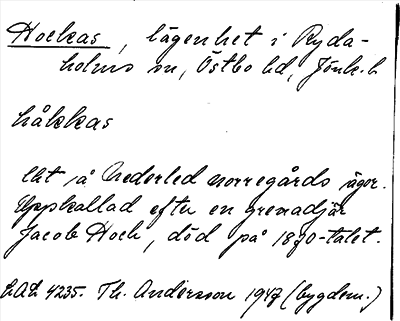 Hockas, lägenhet i Ryda-
holms sn, Östbo hd, Jönk. l.
håkkas
Låt på Nederled norregårds ägor.
Uppkallad efter en grenadjär
Jacob Hock, död på 1870-talet.
LAL 4235. Th. Andersson 1947 (bygdem.)